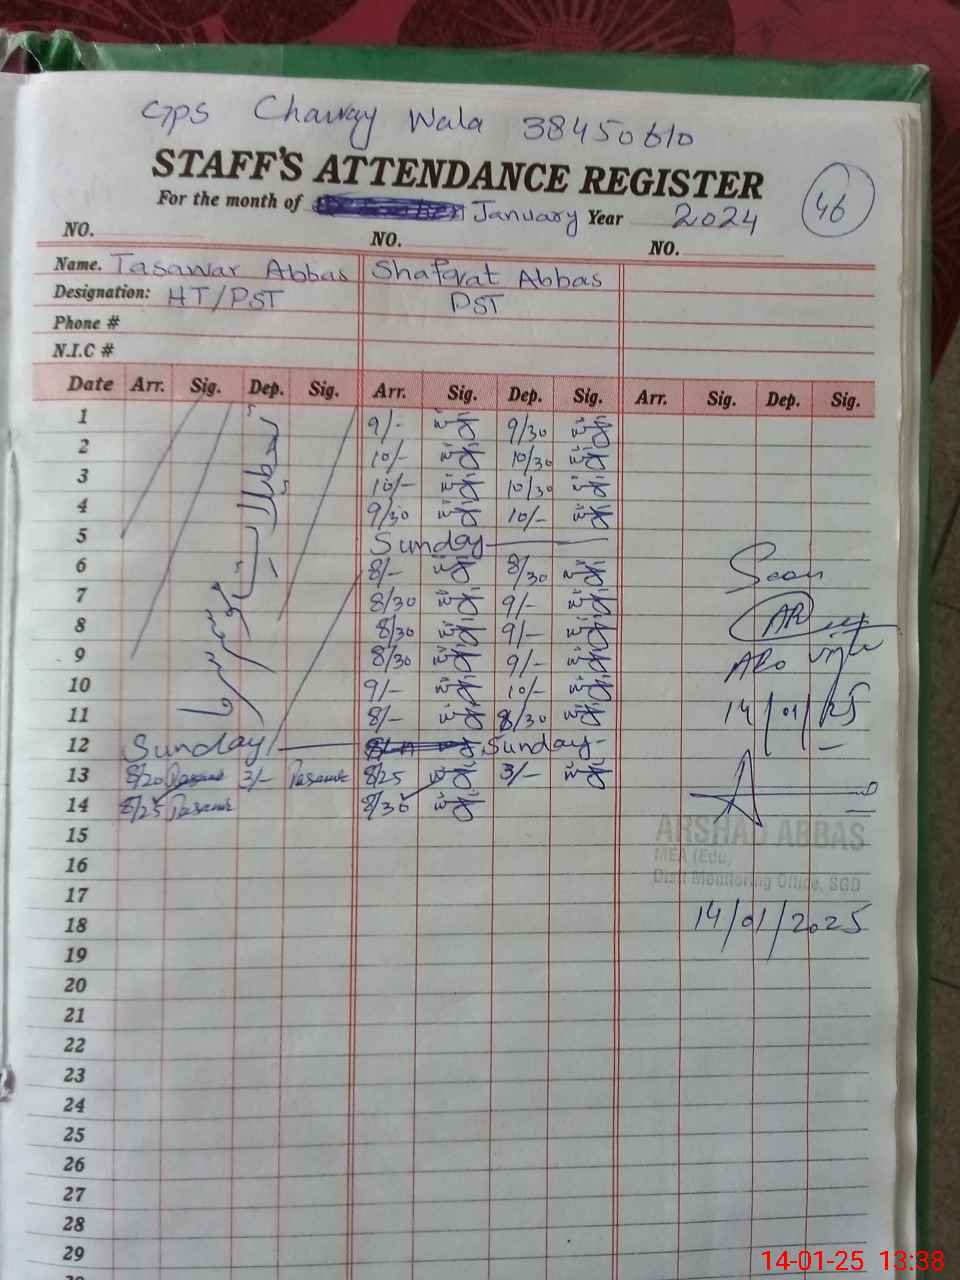 GPS Chaway Wala 38450610
STAFF'S ATTENDANCE REGISTER
46
For the month of January Year 2024
NO. NO. NO.
Name. Tasawar Abbas Shafqat Abbas
Designation: HT/PST PST
Phone #
N.I.C #
Date Arr. Sig. Dep. Sig. Arr. Sig. Dep. Sig. Arr. Sig. Dep. Sig.
1 9/- 9/30
2 10/- 10/30
3 10/- 10/30
4 9/30 10/-
5 Sunday
6 8/- 8/30
7 8/30 9/-
8 8/30 9/-
9 8/30 9/-
10 9/- 10/-
11 8/- 8/30
12 Sunday Sunday
13 8/20 3/- 8/25 3/-
14 8/25 8/30
15
16
17
18
19
20
21
22
23
24
25
26
27
28
29
Seen
14/01/25
ARSHAD ABBAS
MEA (Edu)
Distt Monitoring Office, SGD
14/01/2025
14-01-25 13:38